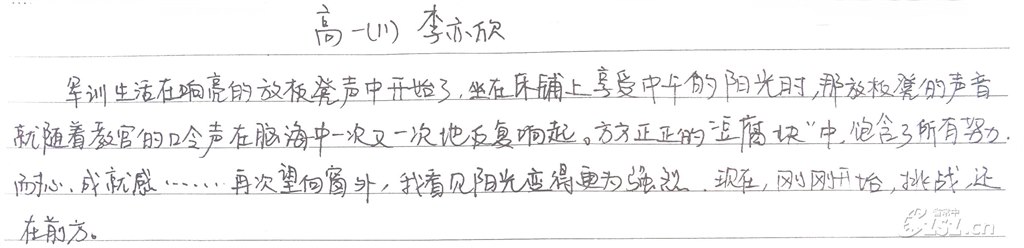 高一(11) 李亦欣
军训生活在响亮的放板凳声中开始了,坐在床铺上享受中午的阳光时,那放板凳的声音
就随着教官的口令声在脑海中一次又一次地反复响起。方方正正的“豆腐块”中,饱含了所有努力.
耐心,成就感……再次望向窗外,我看见阳光变得更为强烈.现在,刚刚开始,挑战,还
在前方。
LSZ.cn